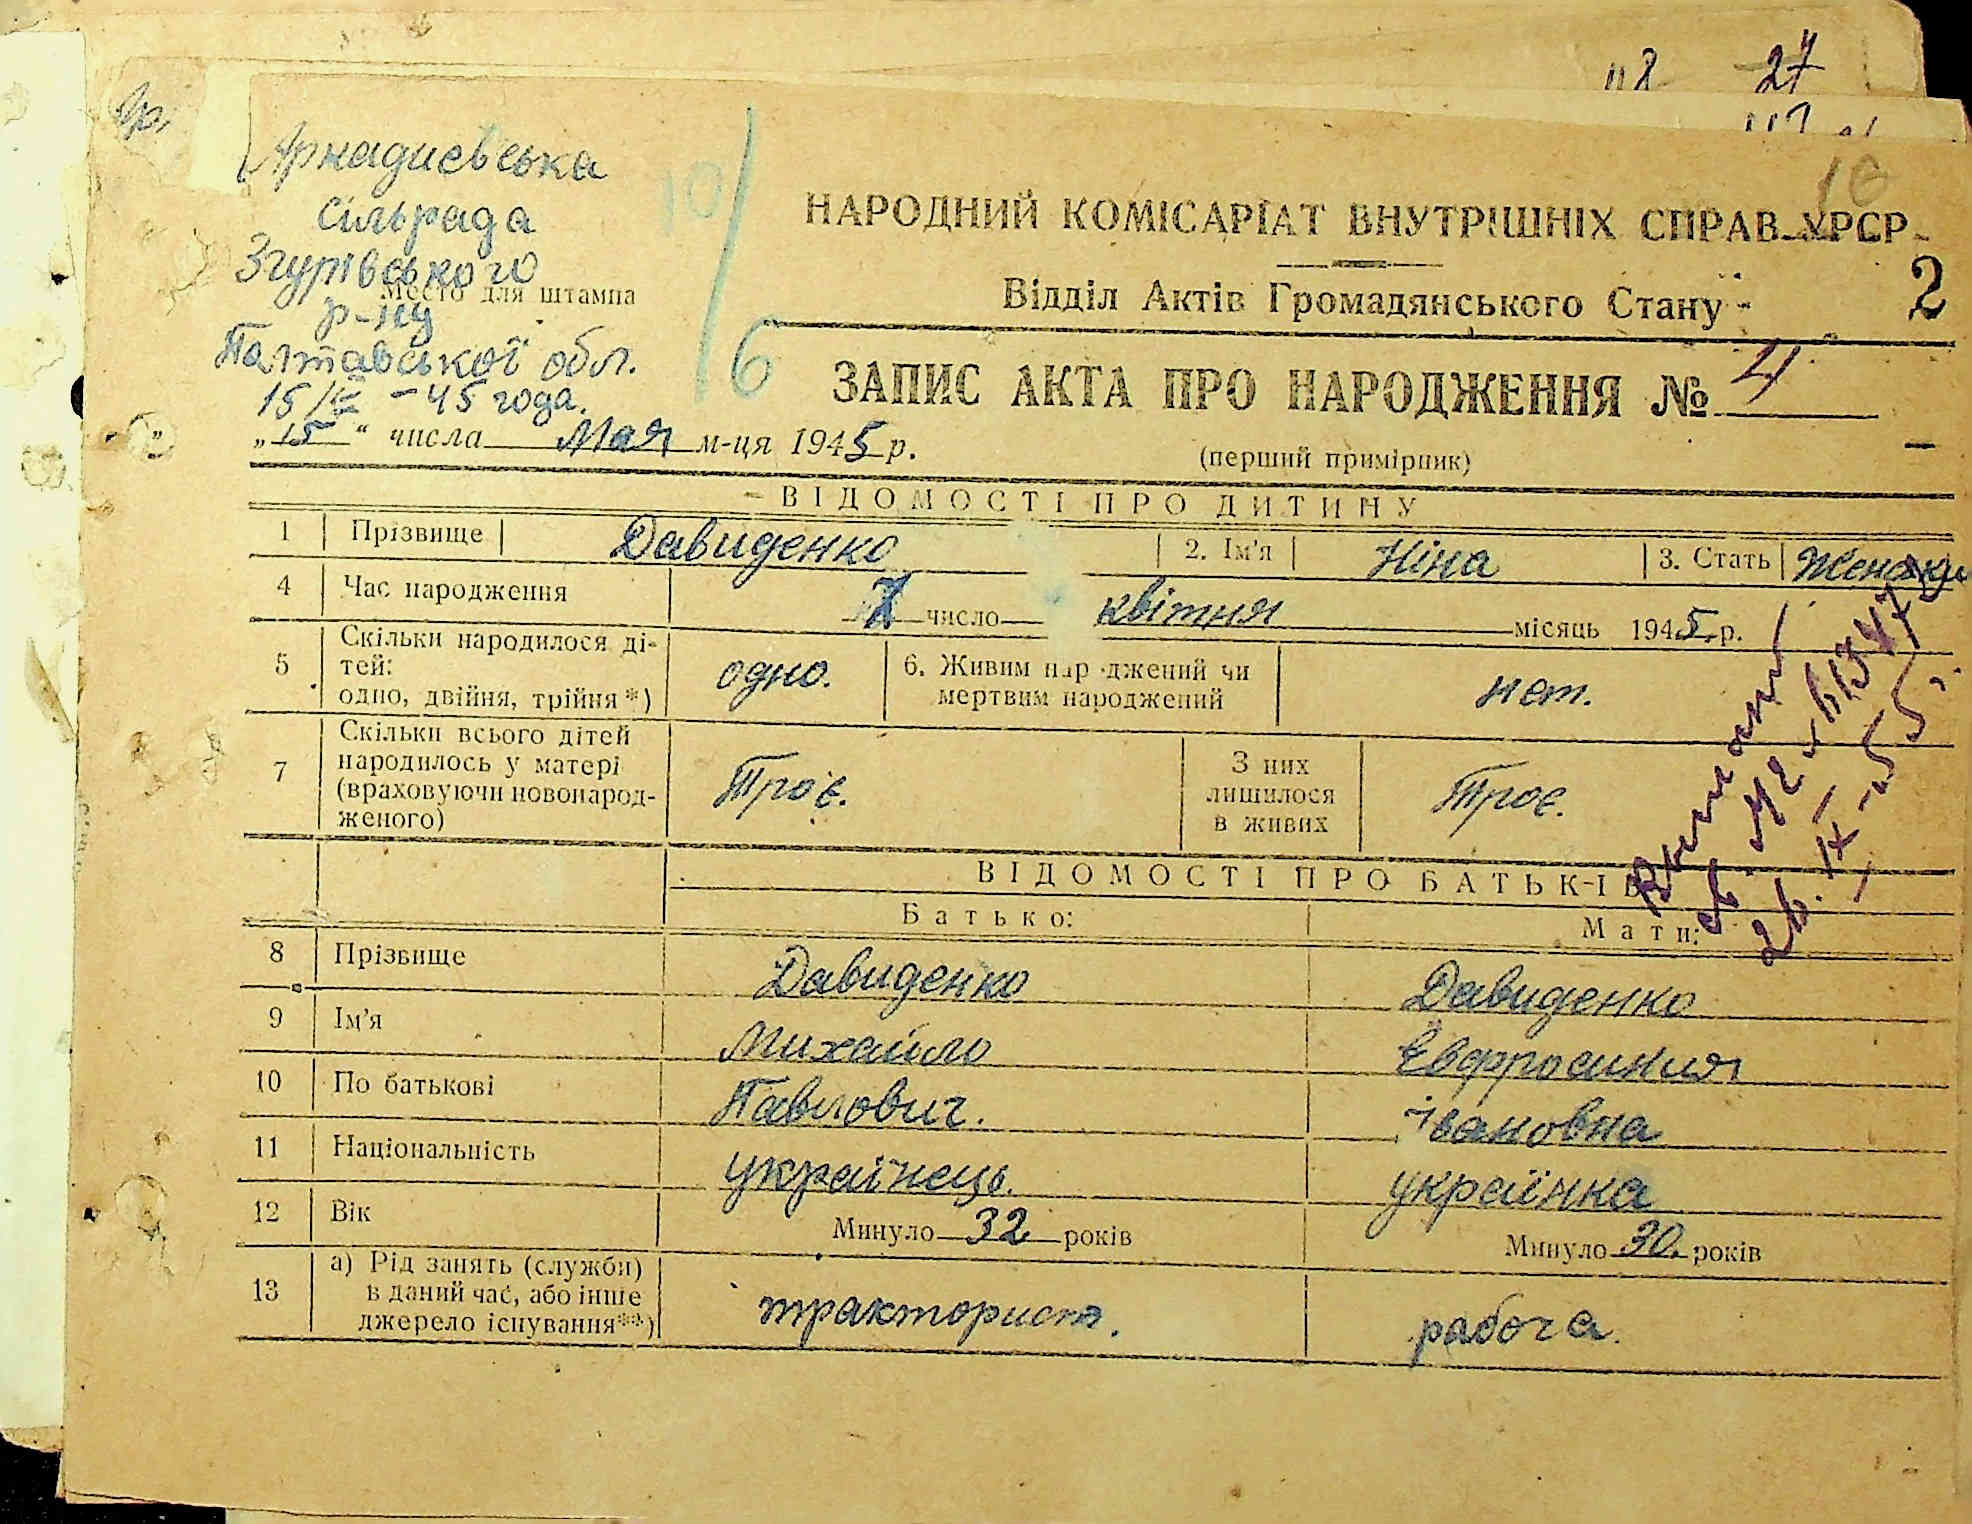 118 27
Аркадиевська
сільрада
Згурівського
Место для штампа
р-ну
Полтавської обл.
15/V – 45 года.
10/6
10
НАРОДНИЙ КОМІСАРІАТ ВНУТРІШНІХ СПРАВ УРСР
Відділ Актів Громадянського Стану
2
ЗАПИС АКТА ПРО НАРОДЖЕННЯ № 4
„15“ числа Мая м-ця 1945 р.
(перший примірник)
ВІДОМОСТІ ПРО ДИТИНУ
1 Прізвище Давиденко 2. Ім'я Ніна 3. Стать
4 Час народження 7 число квітня місяць 1945 р.
5 Скільки народилося ді-
тей:
одно, двійня, трійня *) одно. 6. Живим нар джений чи
мертвим народжений нет.
7 Скільки всього дітей
народилось у матері
(враховуючи новонарод-
женого) Троє. З них
лишилося
в живих Троє.
26. IX – 55
ВІДОМОСТІ ПРО БАТЬКІВ
Батько: Мати:
8 Прізвище Давиденко Давиденко
9 Ім'я Михайло Евфросиния
10 По батькові Павлович. Івановна
11 Національність українець. українка
12 Вік Минуло 32 років Минуло 30. років
13 а) Рід занять (служби)
в даний час, або інше
джерело існування**) тракторист. рабоча.